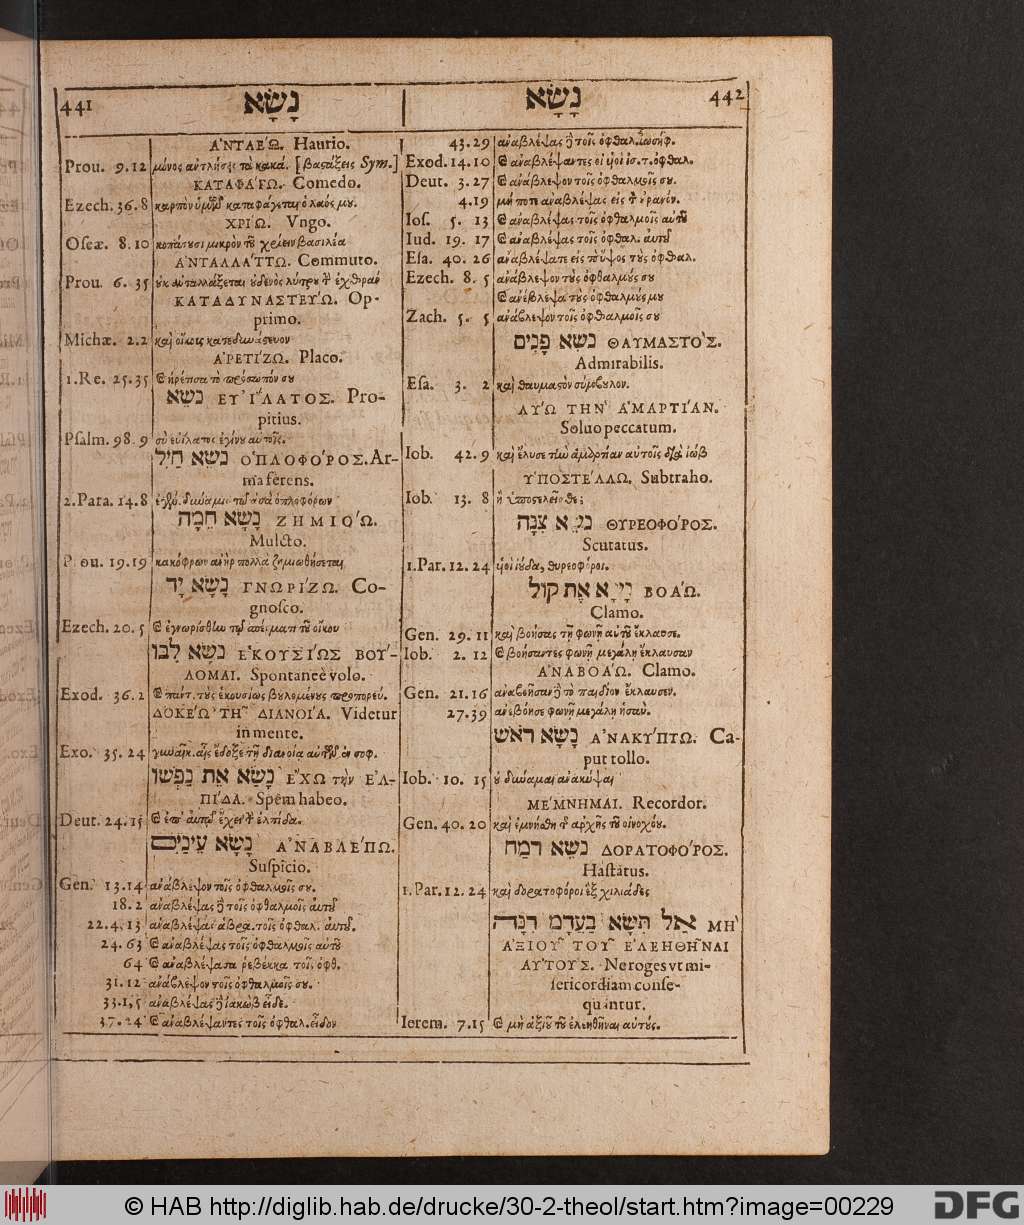 441 נָשָׂא
ἈΝΤΛΕΏ. Haurio.
Prou. 9.12 μόνος ἀντλήσεις τὰ κακά. [βαστάξεις Sym.]
ΚΑΤΑΦΆΓΩ. Comedo.
Ezech. 36.8 καρπὸν ὑμῶν καταφάγεται ὁ λαός μου.
ΧΡΊΩ. Vngo.
Oseæ. 8.10 κοπάσουσι μικρὸν τοῦ χρίειν βασιλέα
ἈΝΤΑΛΛΆΤΤΩ. Commuto.
Prou. 6.35 οὐκ ἀνταλλάξεται οὐδενὸς λύτρου τὴν ἔχθραν
ΚΑΤΑΔΥΝΑΣΤΕΎΩ. Op-
primo.
Michæ. 2.2 καὶ οἴκους κατεδυνάστευον
ἈΡΕΤΊΖΩ. Placo.
1.Re. 25.35 καὶ ᾑρέτισα τὸ πρόσωπόν σου
נשֵׂא ΕΥ̓ΊΛΑΤΟΣ. Pro-
pitius.
Psalm. 98.9 σὺ εὐίλατος ἐγίνου αὐτοῖς.
נשֵׂא חַיִל ὉΠΛΟΦΌΡΟΣ. Ar-
ma ferens.
2.Para. 14.8 δύναμις ὁπλοφόρων
נָשָׂא חֵמָה ΖΗΜΙΌΩ.
Mulcto.
Prou. 19.19 κακόφρων ἀνὴρ πολλὰ ζημιωθήσεται
נָשָׂא יָד ΓΝΩΡΊΖΩ. Co-
gnosco.
Ezech. 20.5 καὶ ἐγνωρίσθην τῷ σπέρματι τοῦ οἴκου
נשֵׂא לִבּוֹ ἙΚΟΥΣΊΩΣ ΒΟΎ-
ΛΟΜΑΙ. Spontaneè volo.
Exod. 36.2 καὶ πάντ. τοὺς ἑκουσίως βουλομένους προπορεύ.
ΔΟΚΈΩ ΤΗ͂ ΔΙΑΝΟΊΑ. Videtur
in mente.
Exo. 35.24 γυναῖκ. αἷς ἔδοξε τῇ διανοίᾳ αὐτῶν ἐν σοφ.
נָשָׂא אֶת נַפְשׁוֹ ἜΧΩ τὴν ἘΛ-
ΠΊΔΑ. Spêm habeo.
Deut. 24.15 καὶ ἐπ' αὐτῷ ἔχει τὴν ἐλπίδα.
נָשָׂא עֵינַיִם ἈΝΑΒΛΈΠΩ.
Suspicio.
Gen. 13.14 ἀνάβλεψον τοῖς ὀφθαλμοῖς σου.
18.2 ἀναβλέψας δὲ τοῖς ὀφθαλμοῖς αὐτοῦ
22.4,13 ἀναβλέψας ἀβρα. τοῖς ὀφθαλ. αὐτοῦ.
24.63 καὶ ἀναβλέψας τοῖς ὀφθαλμοῖς αὐτοῦ
64 καὶ ἀναβλέψασα ῥεβέκκα τοῖς ὀφθ.
31.12 ἀνάβλεψον τοῖς ὀφθαλμοῖς σου.
33.1,5 ἀναβλέψας δὲ ἰακὼβ εἶδε.
37.24 καὶ ἀναβλέψαντες τοῖς ὀφθαλ. εἶδον
נָשָׂא 442
43.29 ἀναβλέψας δὲ τοῖς ὀφθαλ. ἰωσήφ.
Exod. 14.10 καὶ ἀναβλέψαντες οἱ υἱοὶ ἰσ. τ. ὀφθαλ.
Deut. 3.27 καὶ ἀνάβλεψον τοῖς ὀφθαλμοῖς σου.
4.19 μή ποτε ἀναβλέψας εἰς τὸν οὐρανόν.
Ios. 5. 13 καὶ ἀναβλέψας τοῖς ὀφθαλμοῖς αὐτοῦ
Iud. 19. 17 καὶ ἀναβλέψας τοῖς ὀφθαλ. αὐτοῦ
Esa. 40. 26 ἀναβλέψατε εἰς τὸ ὕψος τοὺς ὀφθαλ.
Ezech. 8. 5 ἀνάβλεψον τοὺς ὀφθαλμούς σου
καὶ ἀνέβλεψα τοὺς ὀφθαλμούς μου
Zach. 5. 5 ἀνάβλεψον τοῖς ὀφθαλμοῖς σου
נשִׂא פָנִים ΘΑΥΜΑΣΤΌΣ.
Admirabilis.
Esa. 3. 2 καὶ θαυμαστὸν σύμβουλον.
ΛΎΩ ΤΗΝ̀ ἉΜΑΡΤΊΑΝ.
Soluo peccatum.
Iob. 42.9 καὶ ἔλυσε τὴν ἁμαρτίαν αὐτοῖς διὰ ἰώβ
ὙΠΟΣΤΈΛΛΩ. Subtraho.
Iob. 13. 8 ἢ ὑποστελεῖσθε;
נשֵׂא צִנָּה ΘΥΡΕΟΦΌΡΟΣ.
Scutatus.
1.Par. 12. 24 υἱοὶ ἰούδα, θυρεοφόροι.
נָשָׂא אֶת קוֹל ΒΟΆΩ.
Clamo.
Gen. 29. 11 καὶ βοήσας τῇ φωνῇ αὐτοῦ ἔκλαυσε.
Iob. 2. 12 καὶ βοήσαντες φωνῇ μεγάλῃ ἔκλαυσαν
ἈΝΑΒΟΆΩ. Clamo.
Gen. 21.16 ἀναβοῆσαν δὲ τὸ παιδίον ἔκλαυσεν.
27.39 ἀνεβόησε φωνῇ μεγάλῃ ἡσαῦ.
נָשָׂא רֹאשׁ ἈΝΑΚΎΠΤΩ. Ca-
put tollo.
Iob. 10. 15 οὐ δύναμαι ἀνακύψαι
ΜΈΜΝΗΜΑΙ. Recordor.
Gen. 40. 20 καὶ ἐμνήσθη τῆς ἀρχῆς τοῦ οἰνοχόου.
נשֵׂא רֹמַח ΔΟΡΑΤΟΦΌΡΟΣ.
Hastatus.
1.Par. 12. 24 καὶ δορατοφόροι ἓξ χιλιάδες
אַל תִּשָּׂא בַעֲדָם רִנָּה ΜῊ
ἈΞΙΟΥ͂ ΤΟΥ͂ ἘΛΕΗΘΗ͂ΝΑΙ
ΑΥ̓ΤΟΎΣ. Ne roges vt mi-
sericordiam conse-
quantur.
Ierem. 7.15 καὶ μὴ ἀξιοῦ τοῦ ἐλεηθῆναι αὐτούς.
© HAB http://diglib.hab.de/drucke/30-2-theol/start.htm?image=00229
DFG